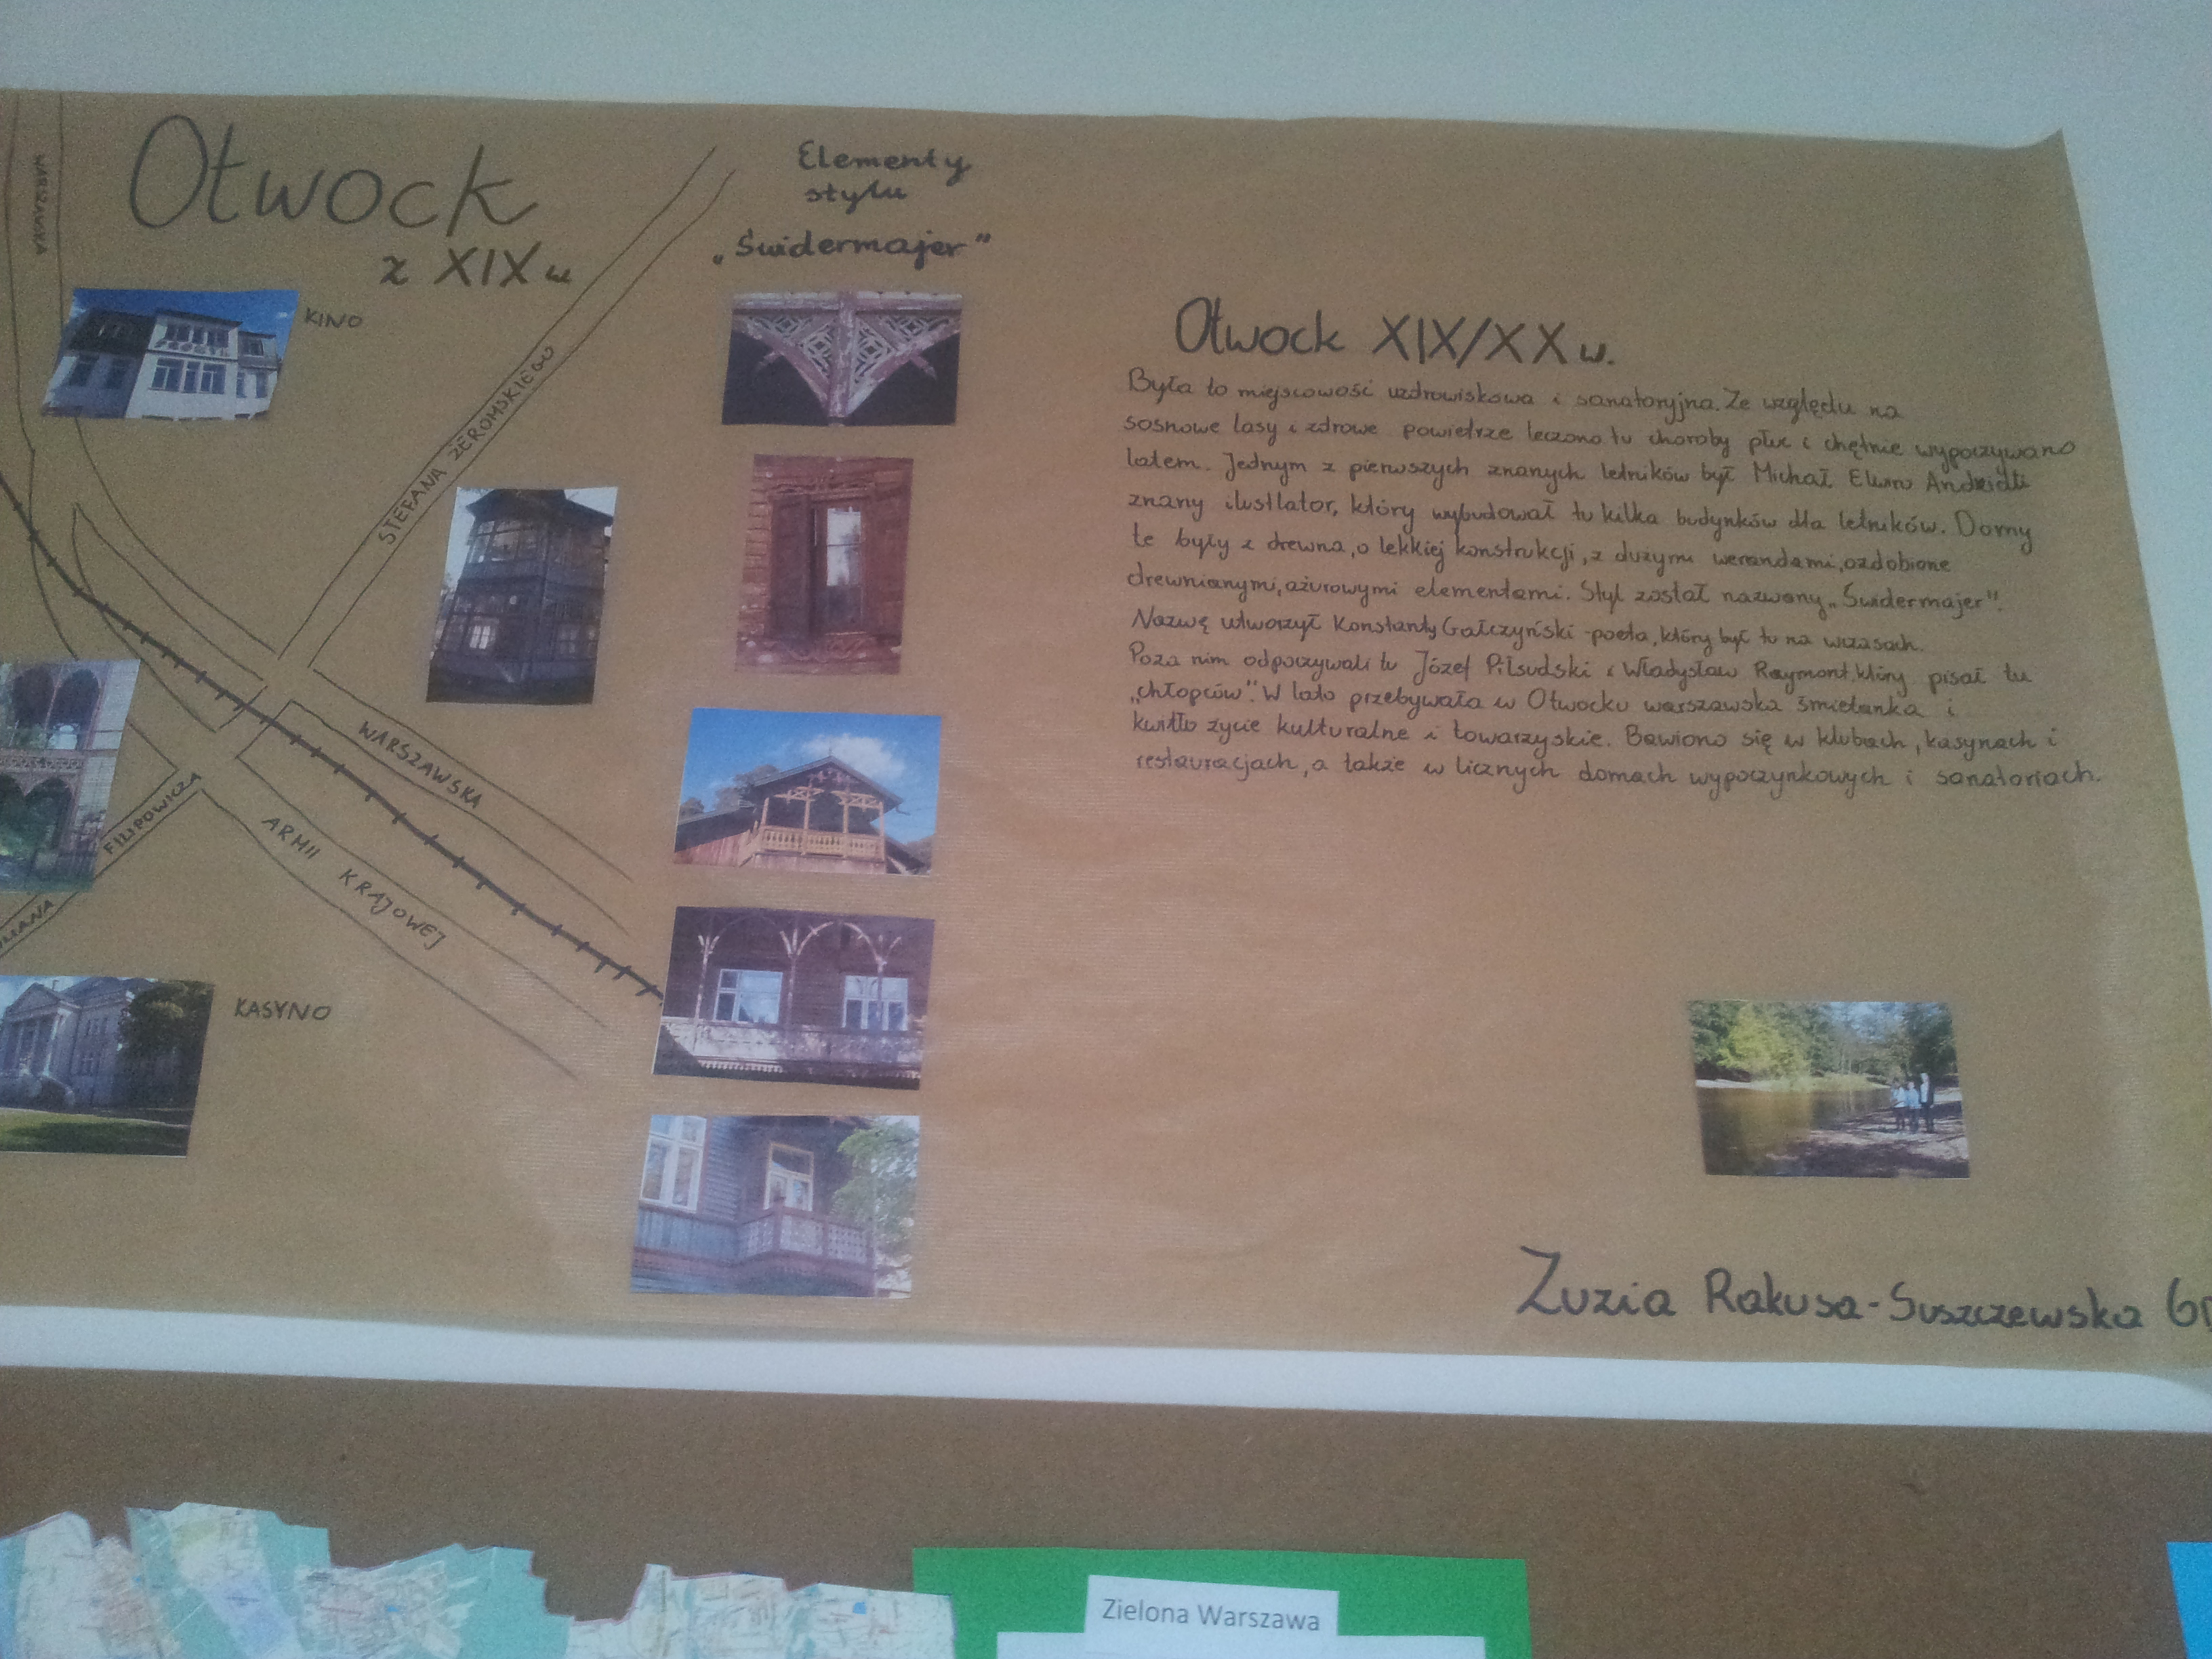 WARSZAWSKA
Otwock
z XIX w
KINO
STEFANA ŻEROMSKIEGO
WARSZAWSKA
ARMII KRAJOWEJ
FILIPOWICZA
KASYNO
Elementy
stylu
„Świdermajer”
Otwock XIX/XX w.
Była to miejscowość uzdrowiskowa i sanatoryjna. Ze względu na
sosnowe lasy i zdrowe powietrze leczono tu choroby płuc i chętnie wypoczywano
latem. Jednym z pierwszych znanych letników był Michał Elwiro Andriolli
znany ilustlator, który wybudował tu kilka budynków dla letników. Domy
te były z drewna, o lekkiej konstrukcji, z dużymi werandami, ozdobione
drewnianymi, ażurowymi elementami. Styl został nazwany „Świdermajer”.
Nazwę utworzył Konstanty Gałczyński - poeta, który był tu na wczasach.
Poza nim odpoczywali tu Józef Piłsudski i Władysław Reymont, który pisał tu
„chłopców”. W lato przebywała w Otwocku warszawska śmietanka i
kwitło życie kulturalne i towarzyskie. Bawiono się w klubach, kasynach i
restauracjach, a także w licznych domach wypoczynkowych i sanatoriach.
Zuzia Rakusa-Suszczewska
Zielona Warszawa